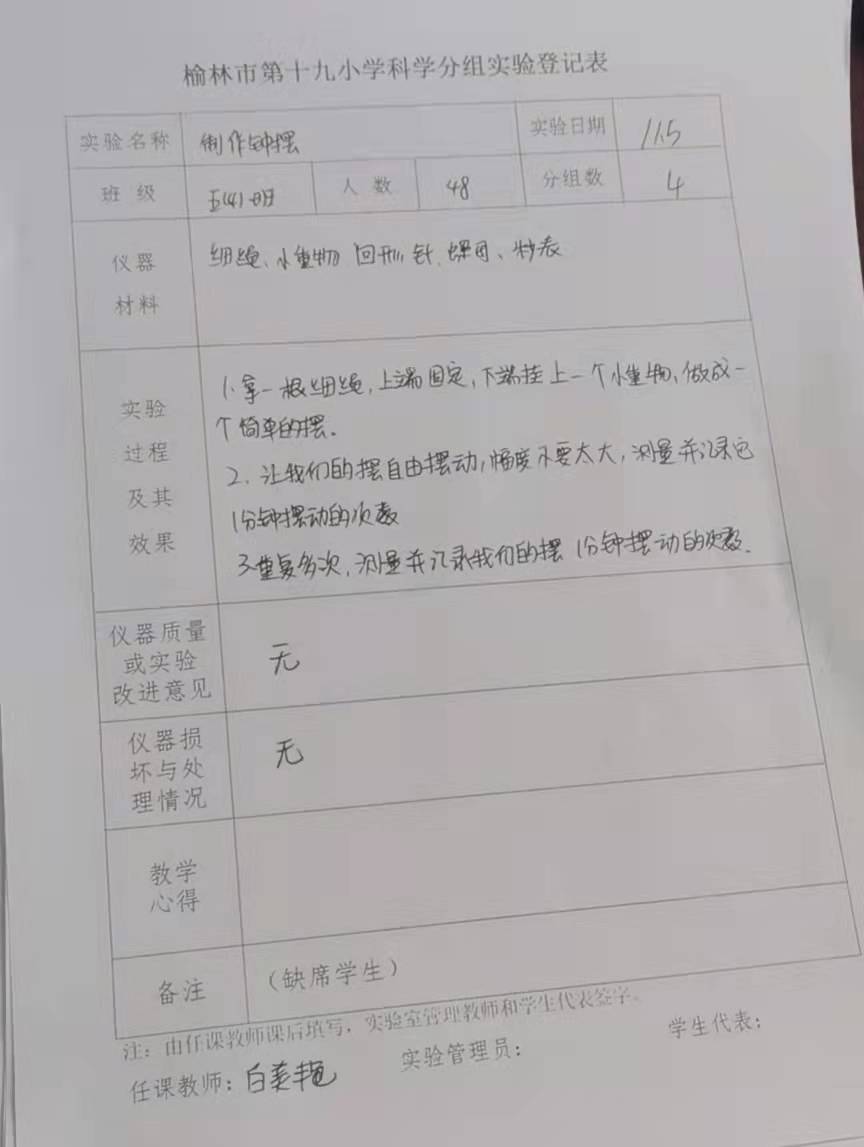 榆林市第十九小学科学分组实验登记表
实验名称 制作钟摆 实验日期 11.5
班 级 五(4)班 人 数 48 分组数 4
仪器
材料
细绳、小重物 回形针、螺母、秒表
实验
过程
及其
效果
1.拿一根细绳,上端固定,下端挂上一个小重物,做成一
个简单的摆.
2.让我们的摆自由摆动,幅度不要太大,测量并记录它
1分钟摆动的次数
3.重复多次,测量并记录我们的摆1分钟摆动的次数.
仪器质量
或实验
改进意见
无
仪器损
坏与处
理情况
无
教学
心得
备注 (缺席学生)
注:由任课教师课后填写,实验室管理教师和学生代表签字。
任课教师:白 实验管理员: 学生代表: